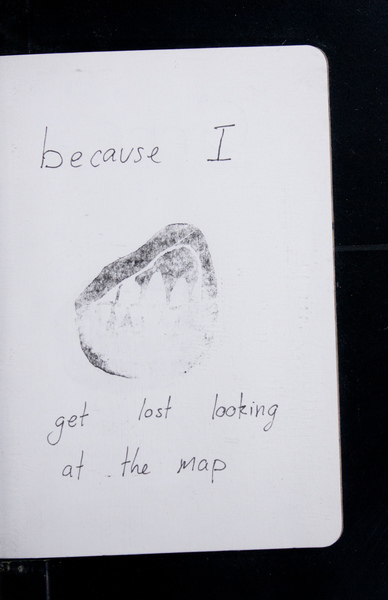 because I
get lost looking
at the map